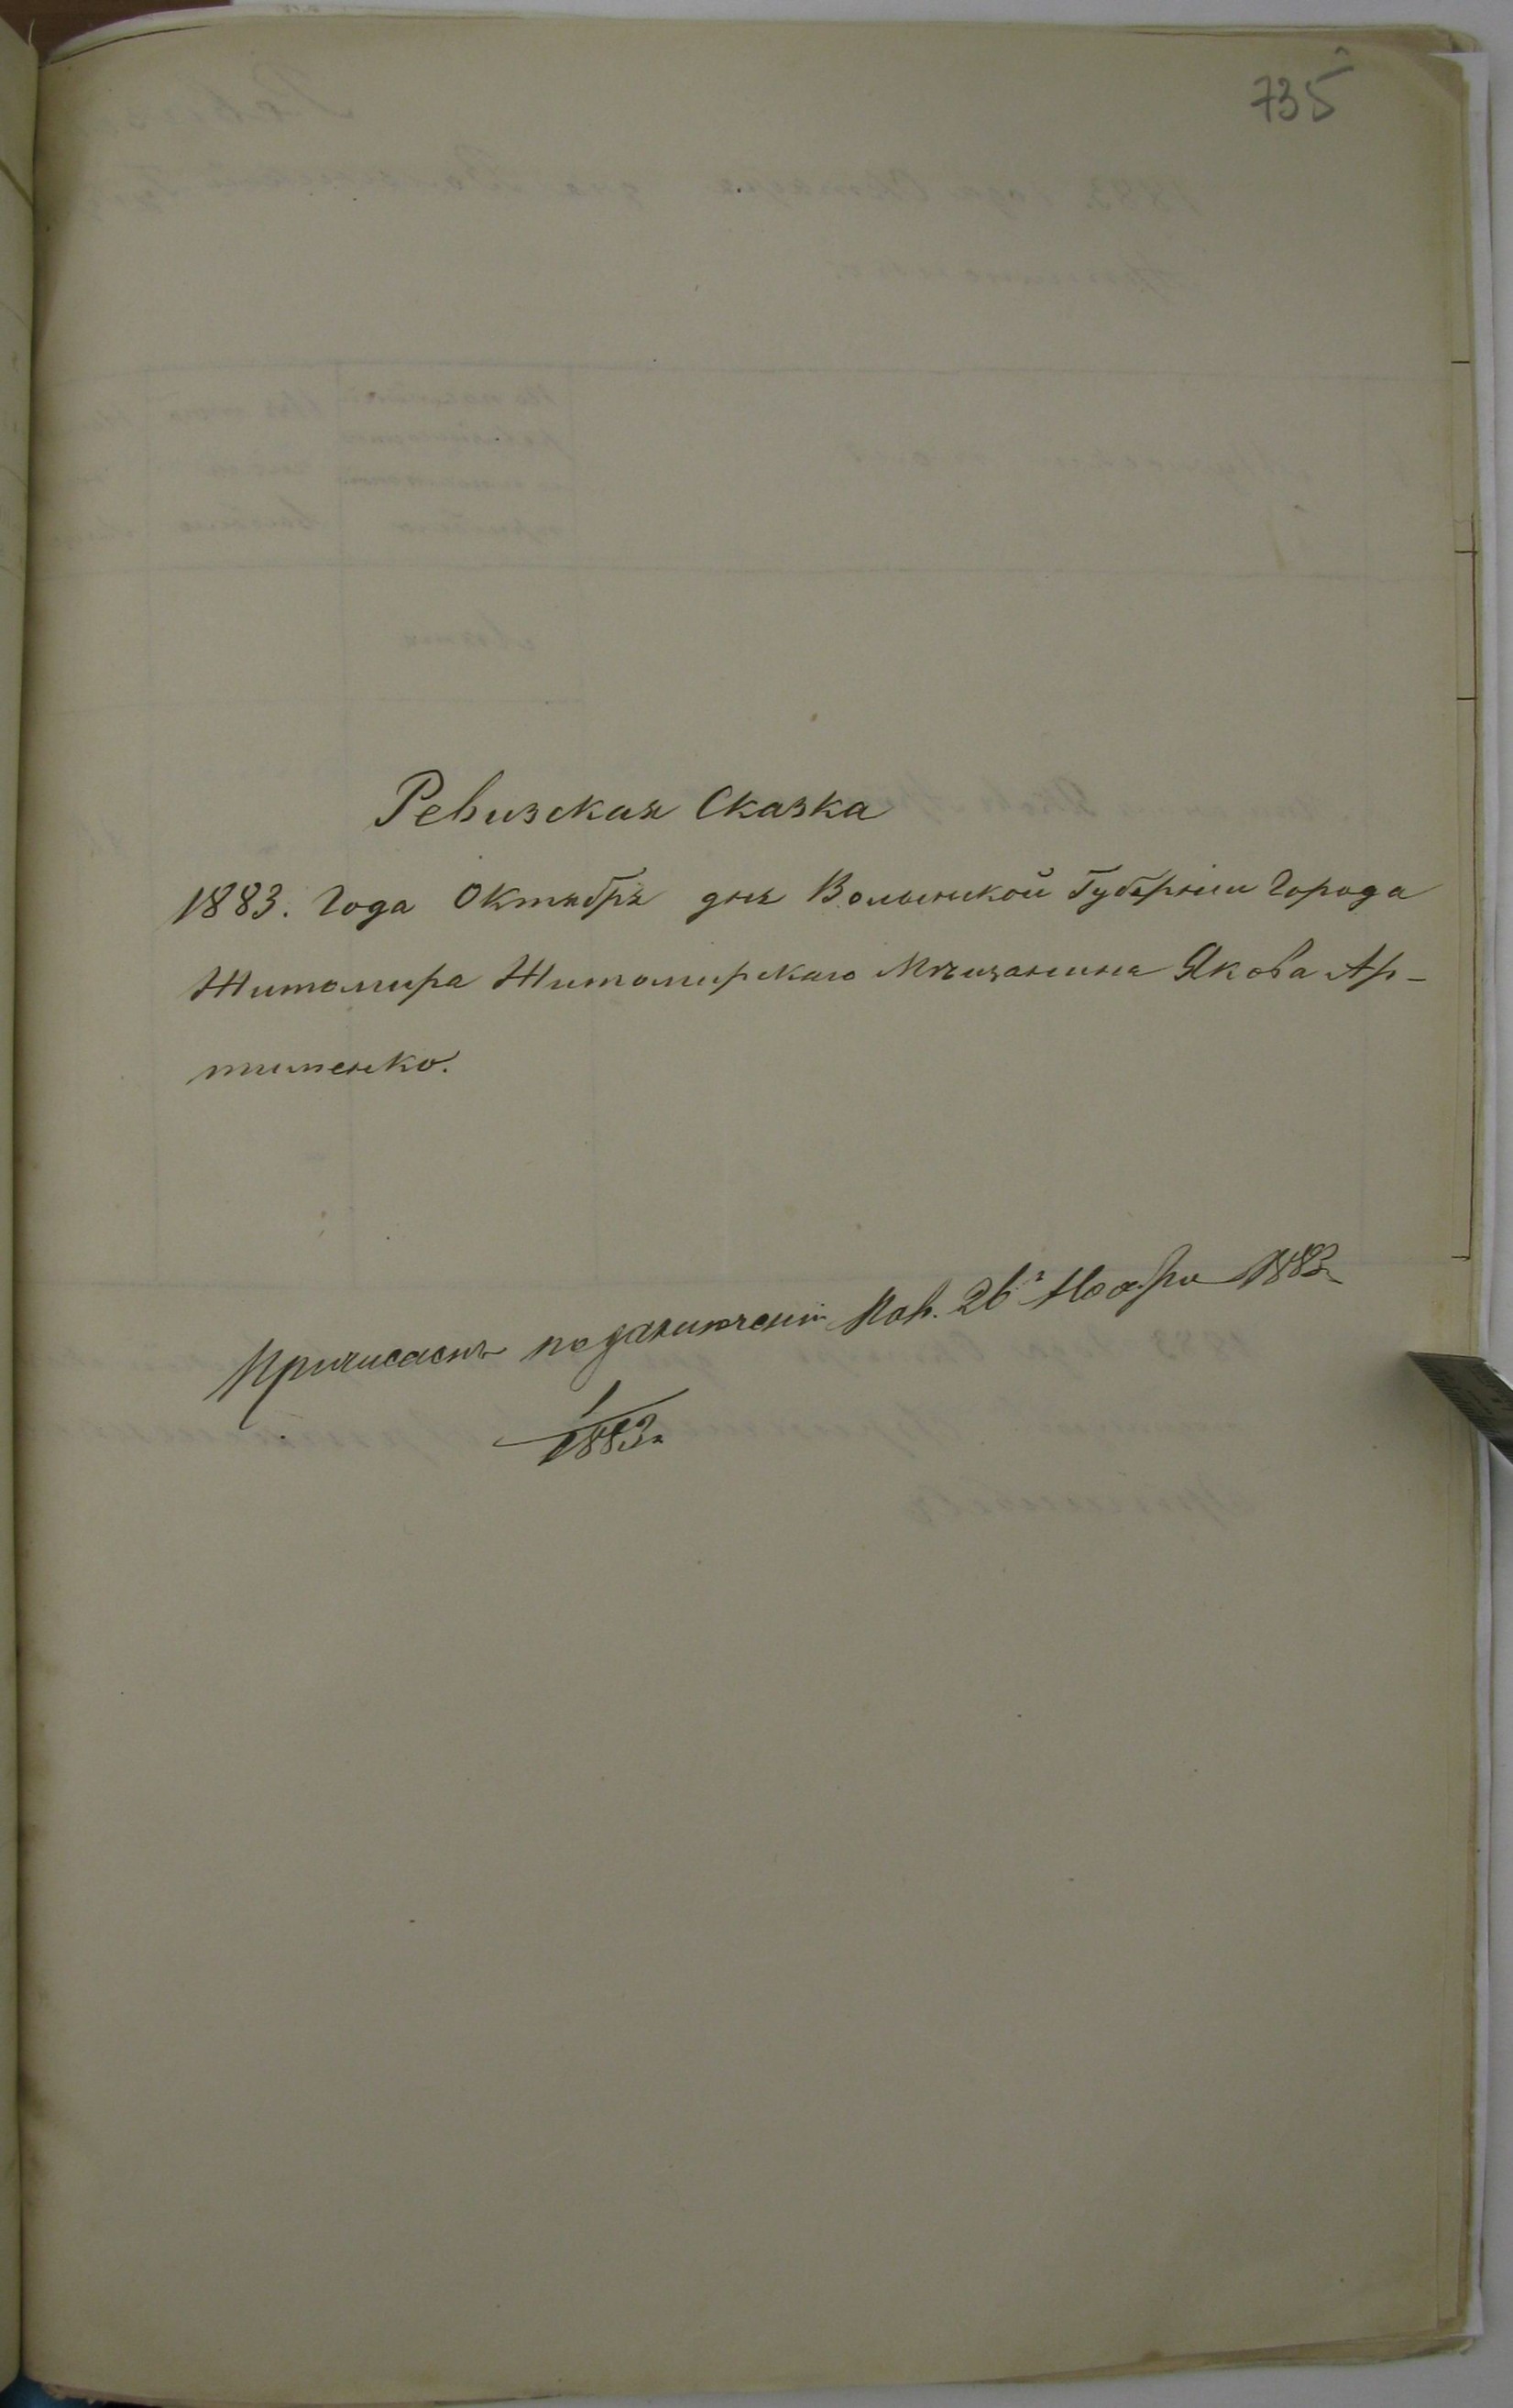 735
Ревизская Сказка
1883. Года Октября дня Волынской Губернии Города
Житомира Житомирскаго Мѣщанина Якова Ар-
тименко.
Причисленъ по заключенію Пал. 26 Ноября 1883
1
1883